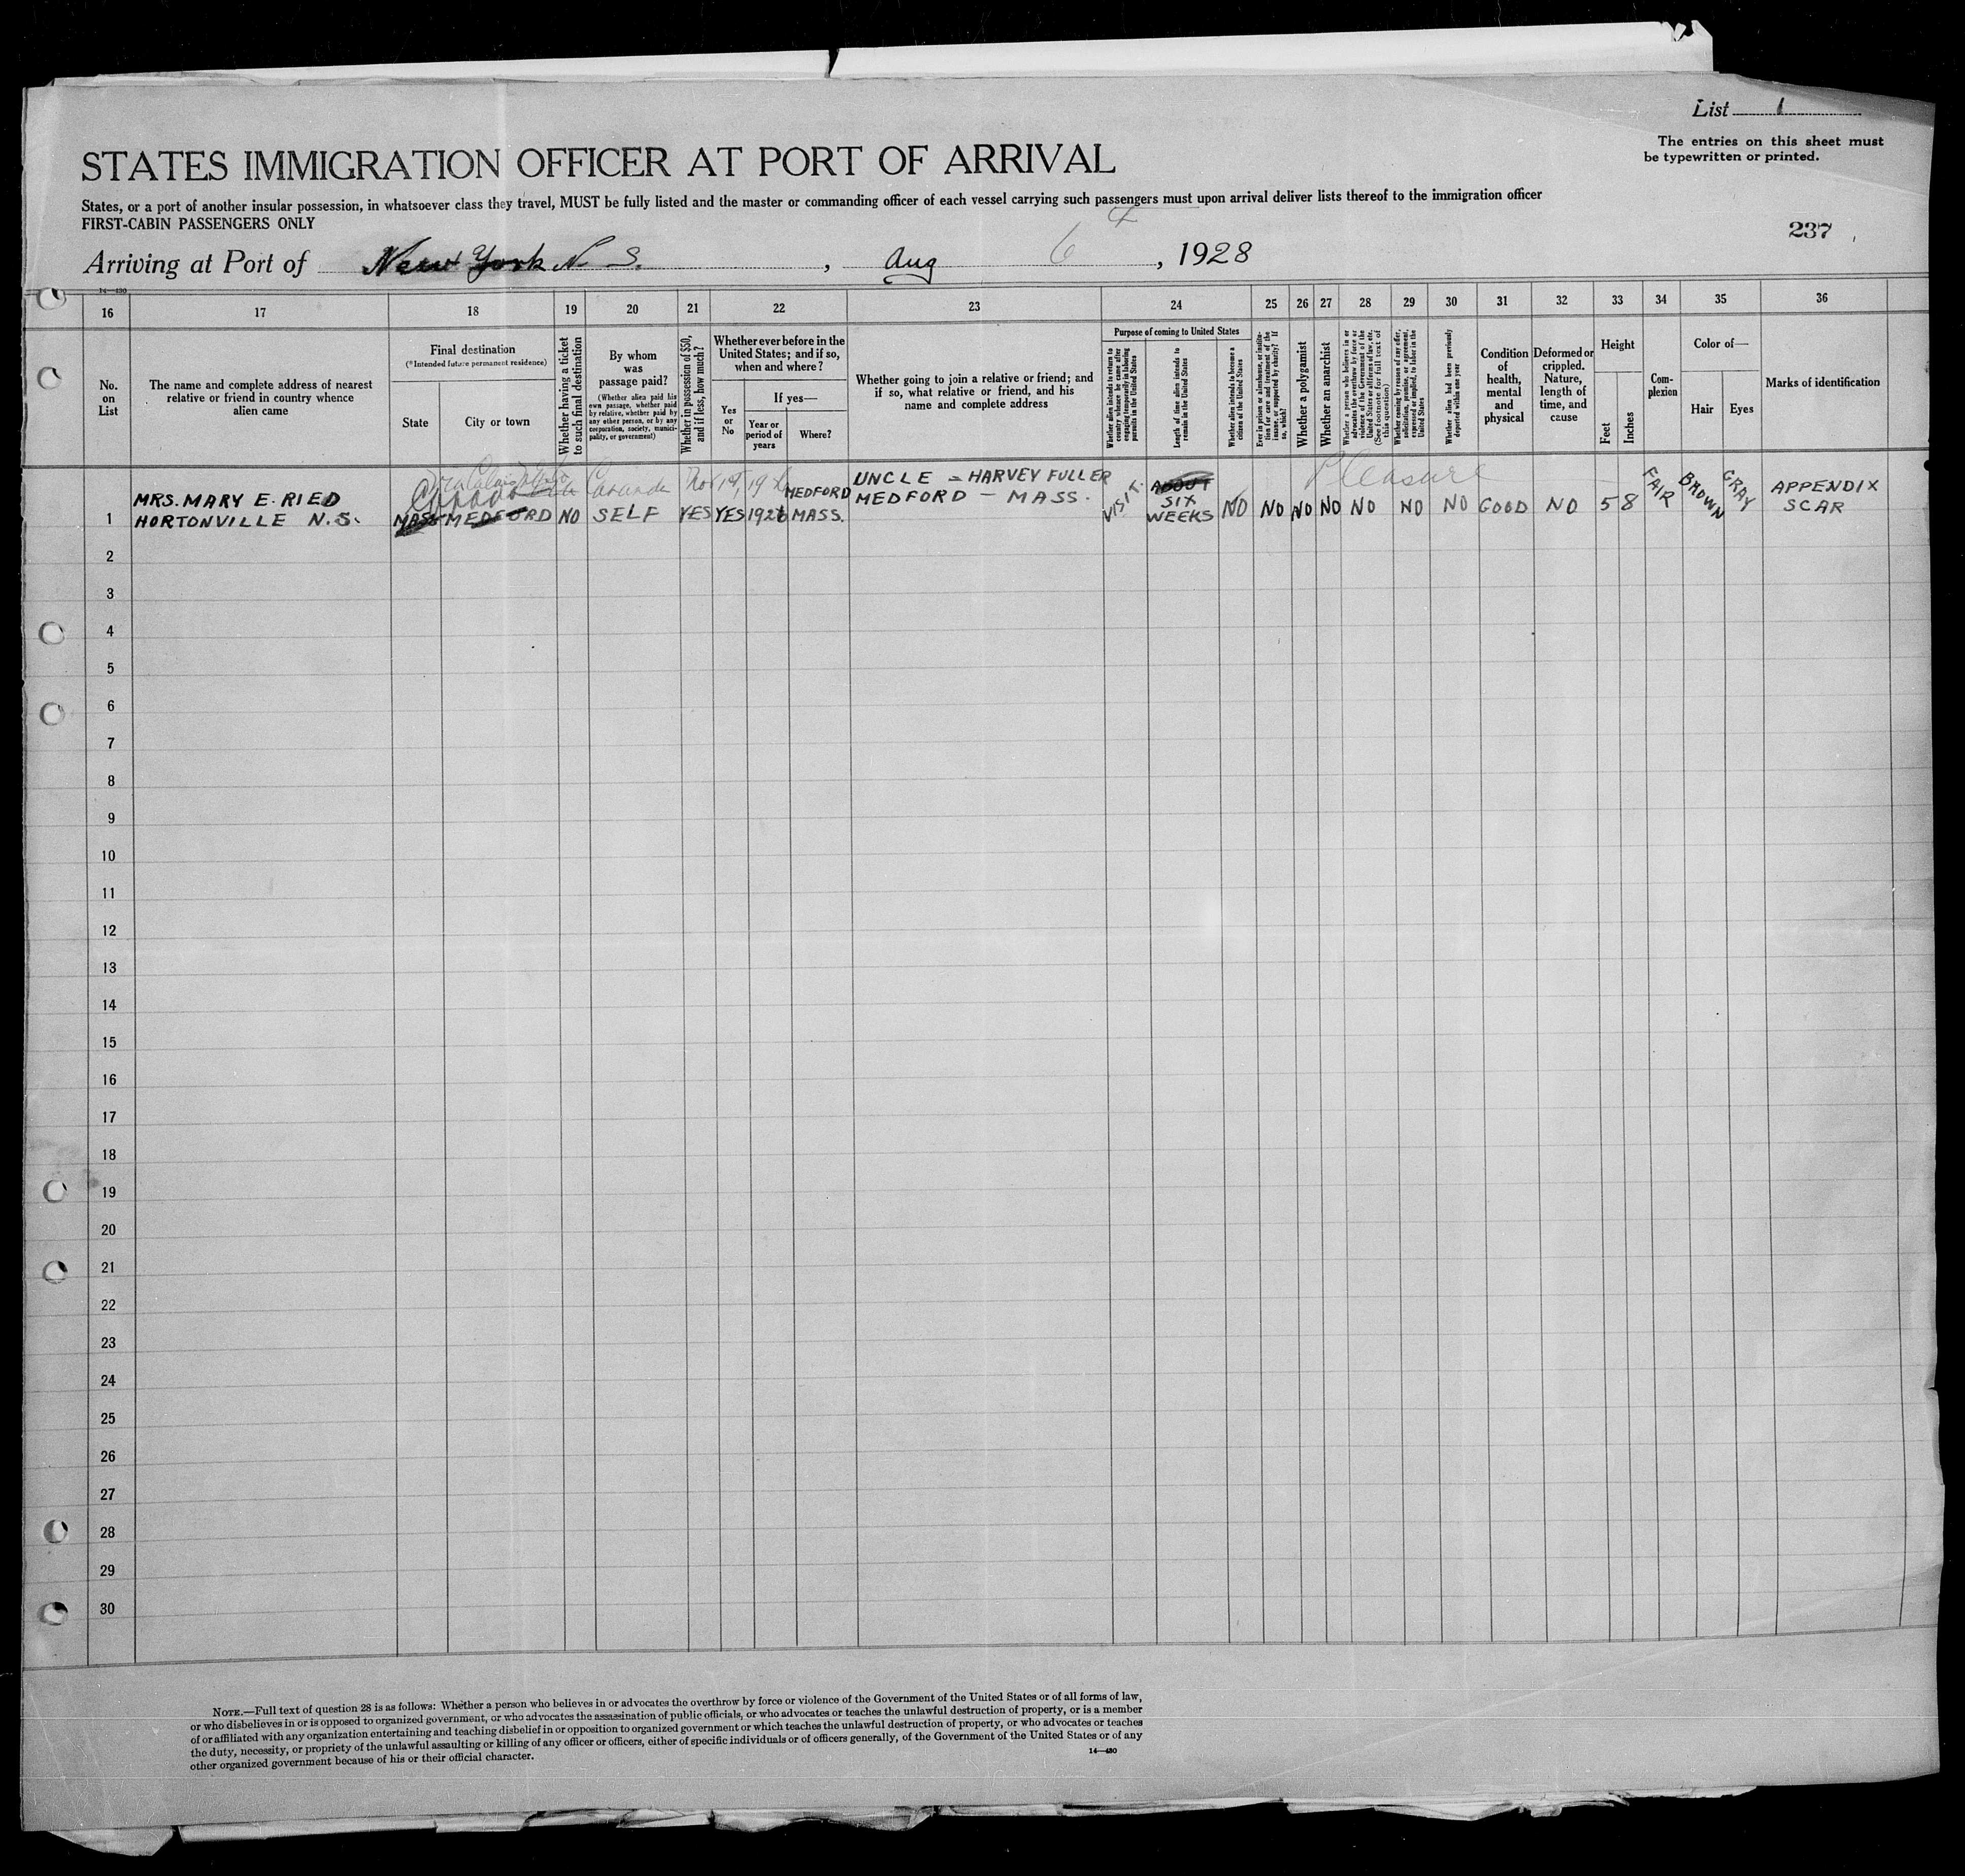 List 1
The entries on this sheet must
be typewritten or printed.
STATES IMMIGRATION OFFICER AT PORT OF ARRIVAL
States, or a port of another insular possession, in whatsoever class they travel, MUST be fully listed and the master or commanding officer of each vessel carrying such passengers must upon arrival deliver lists thereof to the immigration officer
FIRST-CABIN PASSENGERS ONLY
237
Arriving at Port of New York N. S., Aug 6, 1928
14—430
16 17 18 19 20 21 22 23 24 25 26 27 28 29 30 31 32 33 34 35 36
No.
on
List
The name and complete address of nearest
relative or friend in country whence
alien came
Final destination
(*Intended future permanent residence)
State
City or town
Whether having a ticket
to such final destination
By whom
was
passage paid?
(Whether alien paid his
own passage, whether paid
by relative, whether paid by
any other person, or by any
corporation, society, munici-
pality, or government)
Whether in possession of $50,
and if less, how much?
Whether ever before in the
United States; and if so,
when and where?
Yes
or
No
If yes—
Year or
period of
years
Where?
Whether going to join a relative or friend; and
if so, what relative or friend, and his
name and complete address
Purpose of coming to United States
Whether alien intends to return to
country whence he came after
engaging temporarily in laboring
pursuits in the United States
Length of time alien intends to
remain in the United States
Whether alien intends to become a
citizen of the United States
Ever in prison or almshouse, or institu-
tion for care and treatment of the
insane, or supported by charity? If
so, which?
Whether a polygamist
Whether an anarchist
Whether a person who believes in or
advocates the overthrow by force or
violence of the Government of the
United States or all forms of law, etc.
(See footnote for full text of
this question)
Whether coming by reason of any offer,
solicitation, promise, or agreement,
expressed or implied, to labor in the
United States
Whether alien had been previously
deported within one year
Condition
of
health,
mental
and
physical
Deformed or
crippled.
Nature,
length of
time, and
cause
Height
Feet
Inches
Com-
plexion
Color of—
Hair
Eyes
Marks of identification
Pleasure
1 MRS. MARY E. RIED
HORTONVILLE N.S.
MASS MEDFORD NO SELF YES YES 1926 MEDFORD
MASS.
UNCLE = HARVEY FULLER
MEDFORD — MASS.
VISIT. ABOUT
SIX
WEEKS
NO NO NO NO NO NO NO GOOD NO 5 8 FAIR BROWN GRAY APPENDIX
SCAR
2
3
4
5
6
7
8
9
10
11
12
13
14
15
16
17
18
19
20
21
22
23
24
25
26
27
28
29
30
NOTE.—Full text of question 28 is as follows: Whether a person who believes in or advocates the overthrow by force or violence of the Government of the United States or of all forms of law,
or who disbelieves in or is opposed to organized government, or who advocates the assassination of public officials, or who advocates or teaches the unlawful destruction of property, or is a member
of or affiliated with any organization entertaining and teaching disbelief in or opposition to organized government or which teaches the unlawful destruction of property, or who advocates or teaches
the duty, necessity, or propriety of the unlawful assaulting or killing of any officer or officers, either of specific individuals or of officers generally, of the Government of the United States or of any
other organized government because of his or their official character.
14—430